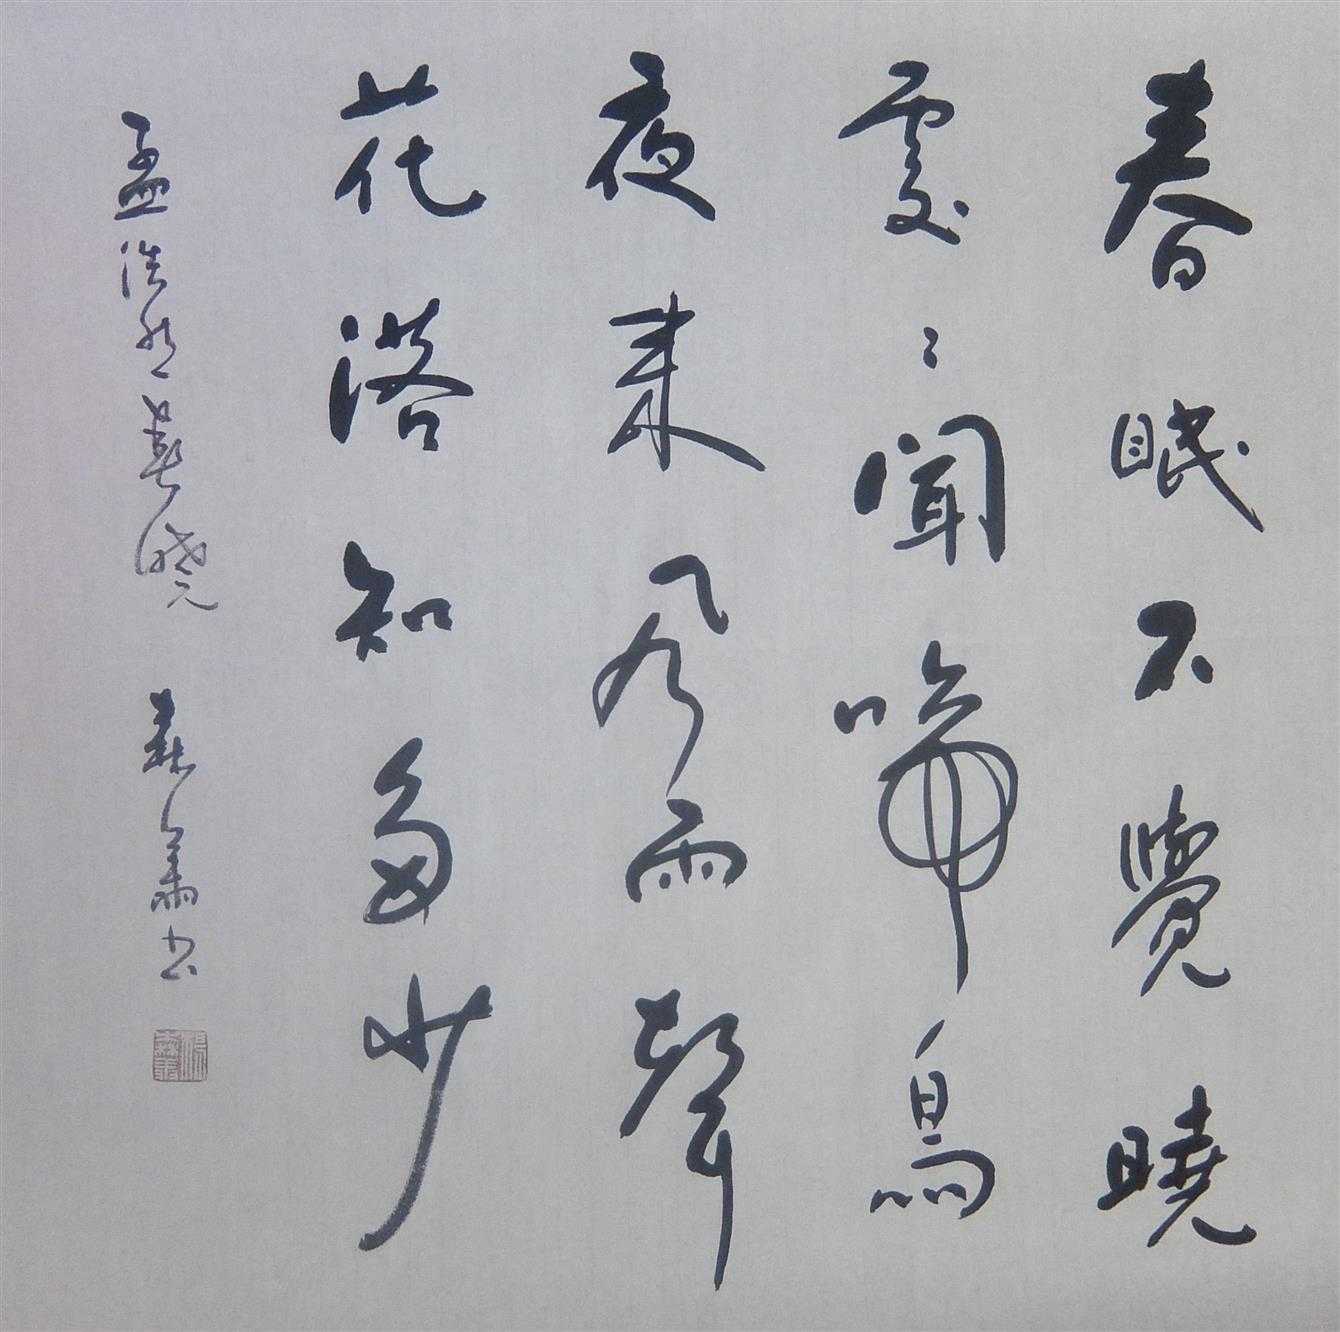 春眠不覺曉
處〻聞啼鳥
夜来風雨聲
花落知多少
孟浩然春曉 書